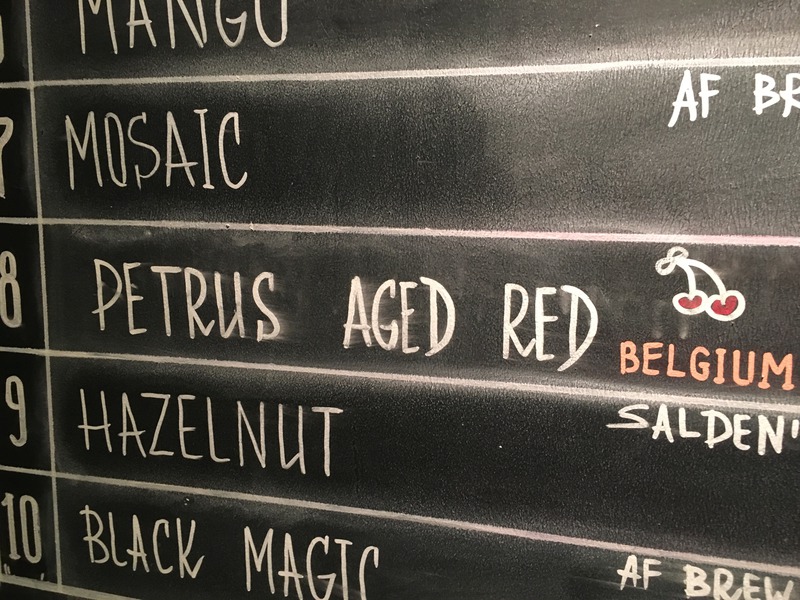 MANGO
AF BR
7 MOSAIC
8 PETRUS AGED RED BELGIUM
9 HAZELNUT SALDEN'
10 BLACK MAGIC AF BREW